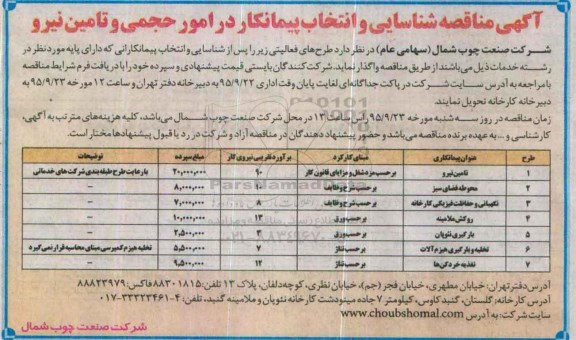 آگهی مناقصه شناسایی و انتخاب پیمانکار در امور حجمی و تامین نیرو
شرکت صنعت چوب شمال (سهامی عام) در نظر دارد طرح‌های فعالیتی زیر را پس از شناسایی و انتخاب پیمانکارانی که دارای پایه مورد نظر در
رشته خدمات ذیل می‌باشند از طریق مناقصه واگذار نماید. شرکت کنندگان بایستی قیمت پیشنهادی و سپرده خود را با دریافت فرم شرایط مناقصه
با مراجعه به آدرس سایت شرکت در پاکت جداگانه‌ای لغایت پایان وقت اداری ۹۵/۹/۲۲ به دبیرخانه دفتر تهران و ساعت ۱۲ مورخه ۹۵/۹/۲۳ به
دبیرخانه کارخانه تحویل نمایند.
زمان مناقصه در روز سه شنبه مورخه ۹۵/۹/۲۳ راس ساعت ۱۳ در محل شرکت صنعت چوب شمال می‌باشد، کلیه هزینه‌های مترتب به آگهی،
کارشناسی و ... به عهده برنده مناقصه می‌باشد و حضور پیشنهاد دهندگان در مناقصه آزاد و شرکت در رد یا قبول پیشنهادها مختار است.
طرح عنوان پیمانکاری مبنای کارکرد برآورد تقریبی نیروی کار مبلغ سپرده توضیحات
۱ تامین نیرو برحسب مزد شغل و مزایای قانون کار ۹۰ ۲۰،۰۰۰،۰۰۰ با رعایت طرح طبقه بندی شرکت‌های خدماتی
۲ محوطه فضای سبز برحسب شرح وظایف ۸،۰۰۰،۰۰۰ –
۳ نگهبانی و حفاظت فیزیکی کارخانه برحسب شرح وظایف ۸ ۷،۰۰۰،۰۰۰ –
۴ روکش ملامینه برحسب ورق ۱۳ ۱۰،۰۰۰،۰۰۰ –
۵ بارگیری نئوپان برحسب ورق ۳ ۲،۵۰۰،۰۰۰ –
۶ تخلیه و بارگیری هیزم آلات برحسب تناژ ۷ ۵،۵۰۰،۰۰۰ تخلیه هیزم کمپرسی مبنای محاسبه قرار نمی‌گیرد
۷ تغذیه خردکن‌ها برحسب تناژ ۱۲ ۹،۵۰۰،۰۰۰ –
آدرس دفتر تهران: خیابان مطهری، خیابان فجر (جم)، خیابان نظری، کوچه دلفان، پلاک ۱۳ تلفن: ۸۸۳۰۱۸۱۵ فاکس: ۸۸۸۲۳۹۷۹
آدرس کارخانه: گلستان، گنبد کاووس، کیلومتر ۷ جاده مینودشت کارخانه نئوپان و ملامینه گنبد، تلفن: ۴-۳۳۲۲۳۴۶۱-۰۱۷
سایت شرکت: به آدرس www.choubshomal.com
شرکت صنعت چوب شمال